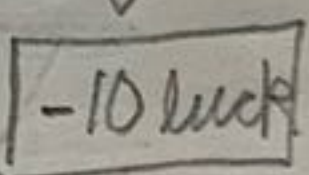 -10 luck